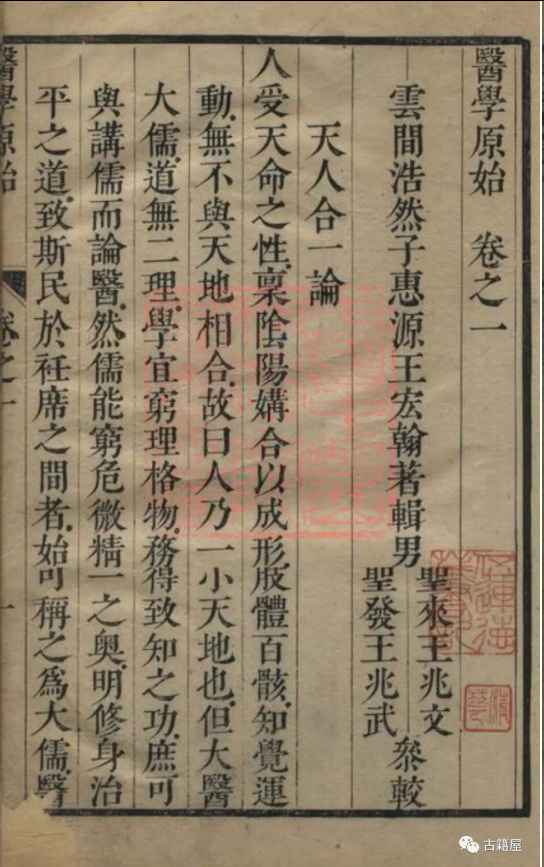 醫學原始　卷之一
雲間浩然子惠源王宏翰著輯男
聖來王兆文
聖發王兆武
叅較
天人合一論
人受天命之性稟陰陽媾合以成形肢體百骸知覺運
動無不與天地相合故曰人乃一小天地也但大醫
大儒道無二理學宜窮理格物務得致知之功庶可
與講儒而論醫然儒能窮危微精一之奧明修身治
平之道致斯民於衽席之間者始可稱之爲大儒醫
醫學原始
卷之一
一
古籍屋